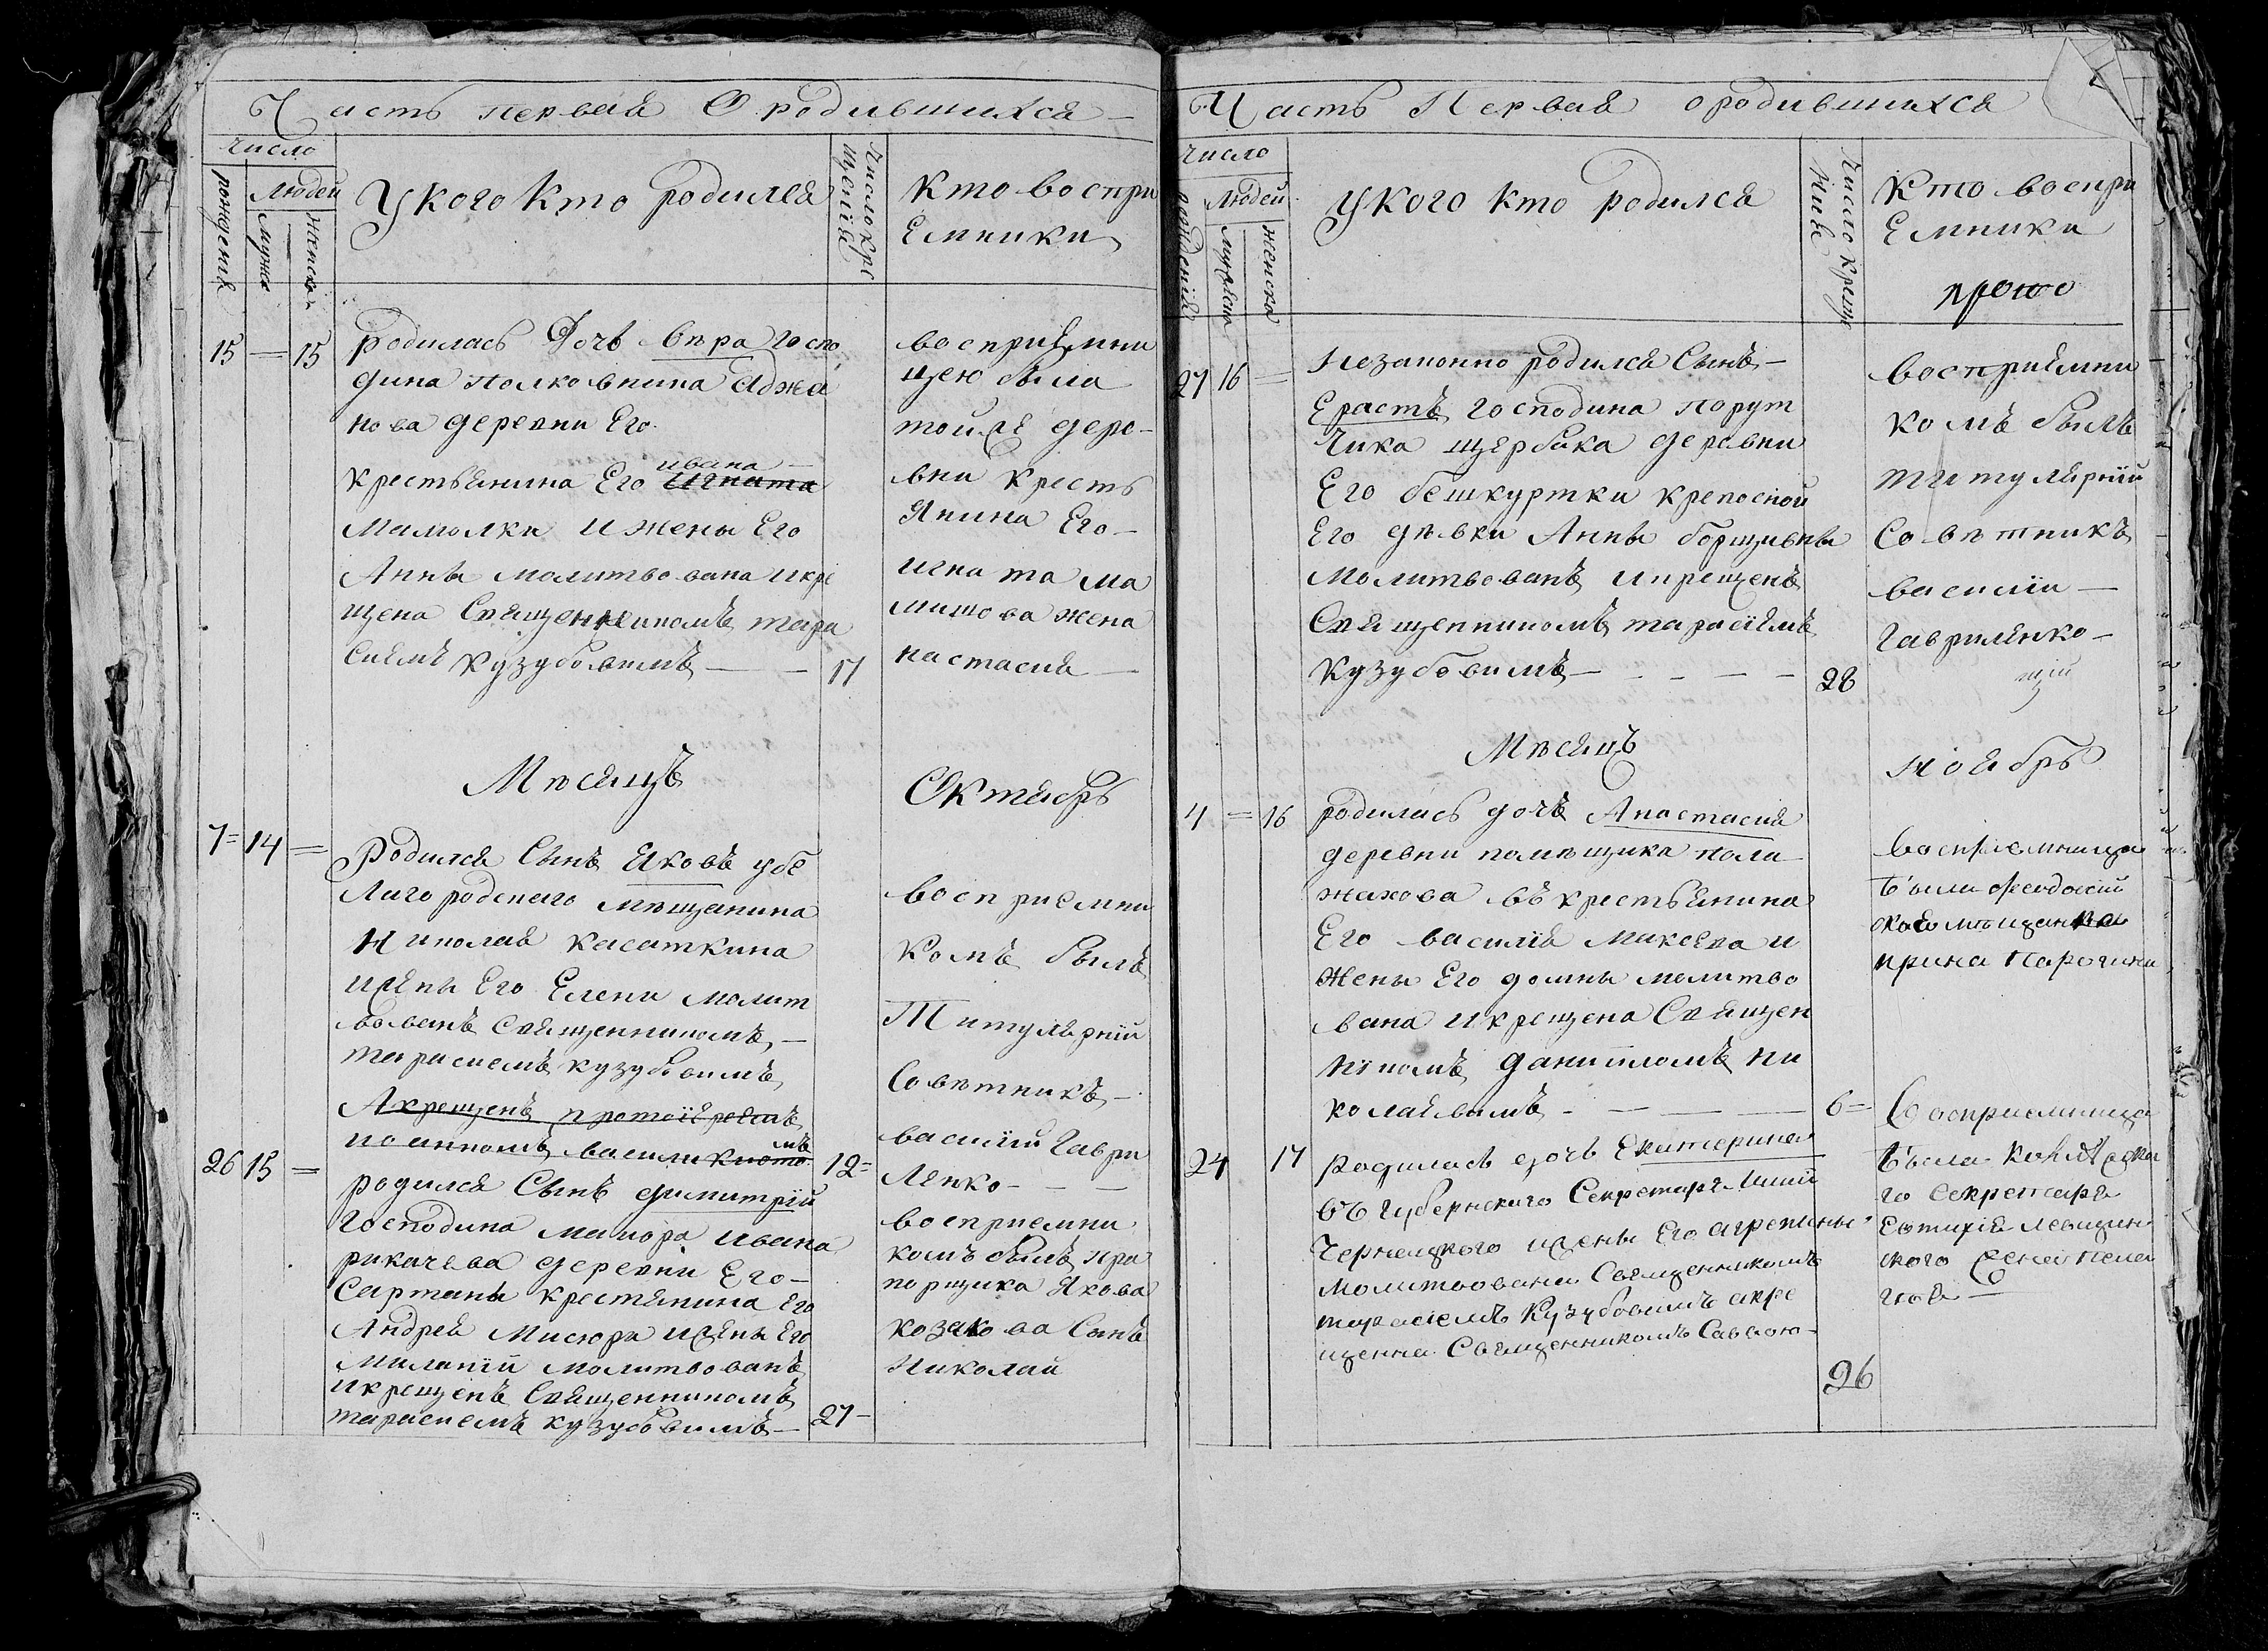 Часть первая О родившихся
Число
рождения
людей
мужеска
женска
У кого кто родился
Число кре
щения
Кто воспри
Емники
15 — 15
родилась Дочь вѣра госпо
дина полковника Аджа
нова деревни Его
крестьянина Его ивана Игната
Мамолки и жены Его
Анны молитвована и кре
щена Священникомъ тара
сиемъ кузубовимъ — — 17
восприемни
цею была
тойже дере-
вни кресть
янина Его-
игната ма
жена
настасия —
Мѣсяцъ Октябрь
7 = 14 =
Родился Сынъ Яковъ убе
лигородскаго мѣщанина
Николая касаткина
ижены Его Елени молит
вованъ священникомъ, —
тарасиемъ кузубовимъ
А крещенъ протоіереемъ
иоанномъ василикиото мъ 12=
восприемни
комъ былъ
Титулярній
Совѣтникъ, —
василій Гаври
ленко — — —
26 15 =
родился Сынъ димитрій
господина маиора Ивана
рикачева деревни Его —
Сартаны крестянина Его
Андрея Мисюри ижены Его
Миланіи молитвованъ
и крещенъ Священникомъ
тарасиемъ кузубовимъ — 27 —
восприемни
комъ былъ пра
порщика Якова
козакова Сынъ
Николай
Часть Первая о родившихся
Число
рождения
людей
мужеска
женска
У кого кто родился
Число креще
ния
Кто воспри
Емники
27 16 =
незаконно родился Сынъ —
Ерастъ господина порут
чика щербака деревни
Его бешкуртки крепосной
Его дѣвки Анны борщивны
молитвованъ и крещенъ
Священникомъ тарасіемъ
кузубовимъ — — — — — 28
восприемни
комъ былъ
титулярній
Совѣтникъ
василіи —
гавриленко —
Мѣсяцъ ноябрь
4 = 16
родилась дочъ Анастасия
деревни помѣщика пола
жахова въ крестьянина
Его василія Макеева и
жены Его домны молитво
вана и крещена Священ
никомъ даниіломъ ни
колаевимъ — — — — 6 =
восприемница
была феодосій
ская мѣщанка
ирина
24 17
родилась дочь Екатерина
въ губернского Секретаря
Чернецкого ижены Его агрепины
молитвована Священникомъ
тарасіемъ Кузубовимъ а кре
щенна Священникомъ Саввою — 26
восприемница
была колежска
го секретаря
Евтихія
ского жена пела
гея —